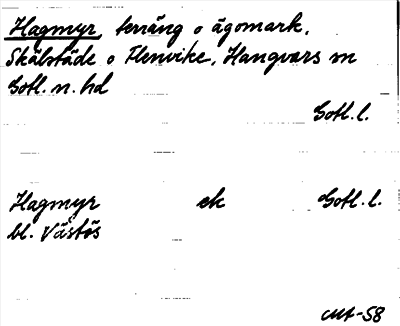 Hagmyr, terräng o ägomark,
Skälstäde o Flenvike, Hangvars sn
Gotl. n. hd
Gotl. l.
Hagmyr ek Gotl. l.
bl. Västös
-58